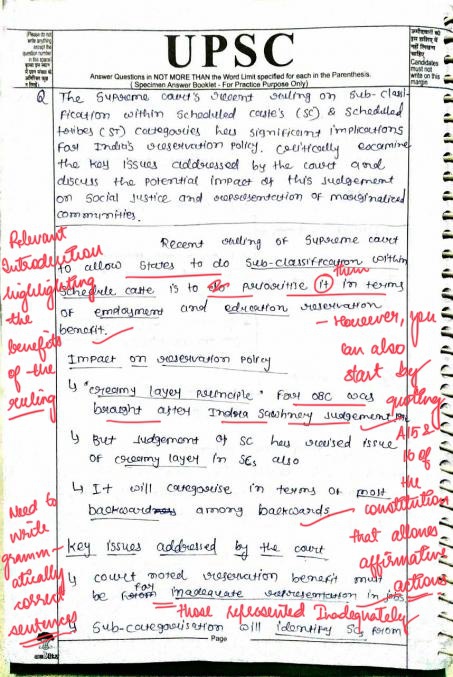 (Please do not
write anything
except the
question number
in this space)
UPSC
उम्मीदवारों को
इस हाशिए में
नहीं लिखना
चाहिए
Candidates
must not
write on this
margin
Answer Questions in NOT MORE THAN the Word Limit specified for each in the Parenthesis.
( Specimen Answer Booklet - For Practice Purpose Only)
Q The Supreme court's recent ruling on Sub-classi-
fication within Scheduled caste's (SC) & Scheduled
tribes (ST) categories has significant implications
for India's reservation policy. Critically examine
the key issues addressed by the court and
discuss the potential impact of this judgement
on social justice and representation of marginalized
communities.
Relevant
Introduction
highlighting
the
benefits
of the
ruling
Recent ruling of Supreme court
to allow States to do Sub-classification within
schedule caste is to prioritise it in terms
them
of employment and education reservation
benefit.
- However, you
can also
start by
quoting
A15 &
16 of
the
constitution
that allows
affirmative
actions
Impact on reservation policy
↳ "creamy layer principle" for OBC was
braught after Indira Sawhney Judgement
↳ But Judgement of SC has raised issue
of creamy layer in SCs also
↳ It will categorise in terms of most
backward among backwards
Need to
write
gramm-
atically
correct
sentences
key issues addressed by the court
↳ court noted reservation benefit must
be for inadequate representation in jobs
those represented Inadequately
↳ Sub-categorisation will identify SCs from
Page